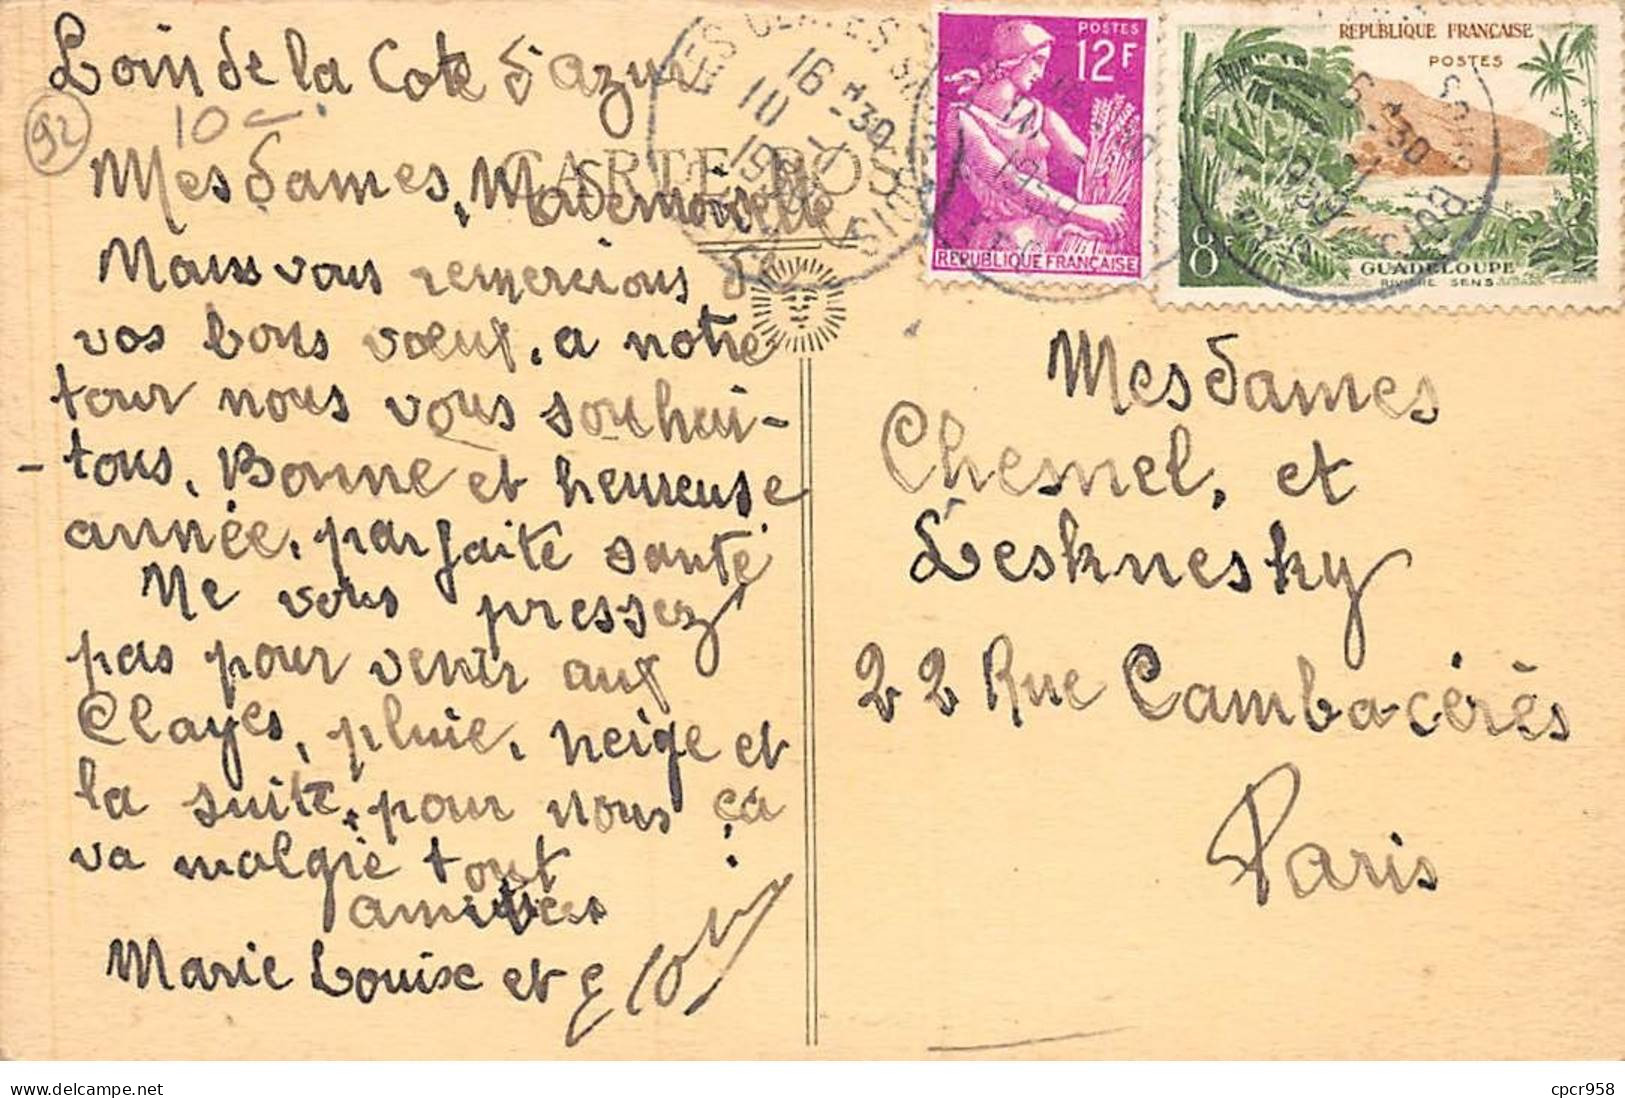 Loin de la Cote d'azur
92
10
CARTE POS
Mesdames, Mademoiselle
Nous vous remercions d
vos bons voeux, a notre
tour nous vous souhai-
-tons, Bonne et heureuse
année, parfaite santé
Ne vous pressez
pas pour venir aux
Clayes, pluie, neige et
la suite, pour nous ça
va malgré tout
amitiés
Marie Louise et
LES CLAYES SOUS BOIS
16 H 30
10 - 1
19
POSTES
12F
REPUBLIQUE FRANÇAISE
REPUBLIQUE FRANÇAISE
POSTES
8F
GUADELOUPE
RIVIÈRE SENS
Mesdames
Chesnel, et
Lesknesky
22 Rue Cambacérès
Paris
cpcr958